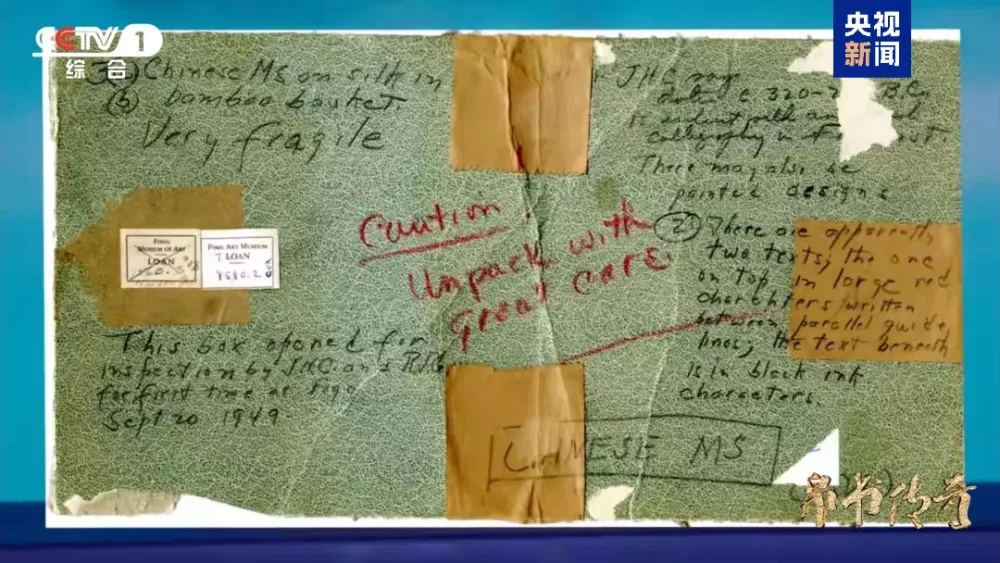 CCTV 1
综合
央视
新闻
Chinese MS on silk in
(b) bamboo basket
Very fragile
JHC says
date c. 320-
B.C.
calligraphy in
There may also be
painted designs
② There are apparently
two texts; the one
on top, in large red
characters written
between parallel guide
lines; the text beneath
is in black ink
characters.
Caution.
Unpack with
great care.
FOGG
MUSEUM OF ART
LOAN
FOGG ART MUSEUM
T LOAN
8580.2
This box opened for
inspection by JHC and
for first time at Fogg
Sept 20 1949
CHINESE MS
帛书传奇